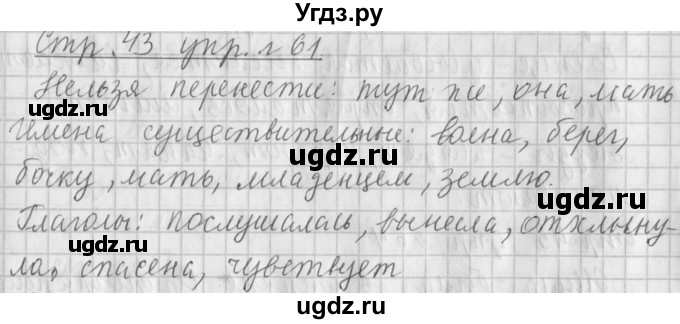 Угдз.ру
Стр. 43 упр. № 61
Нельзя перенести: тут же, она, мать
Имена существительные: волна, берег,
ugdz.ru ugdz.ru
бочку, мать, младенцем, землю.
ugdz.ru
Глаголы: послушалась, вынесла, отхлыну-
ugdz.ru ugdz.ru
ла, спасена, чувствует
ugdz.ru
ugdz.ru